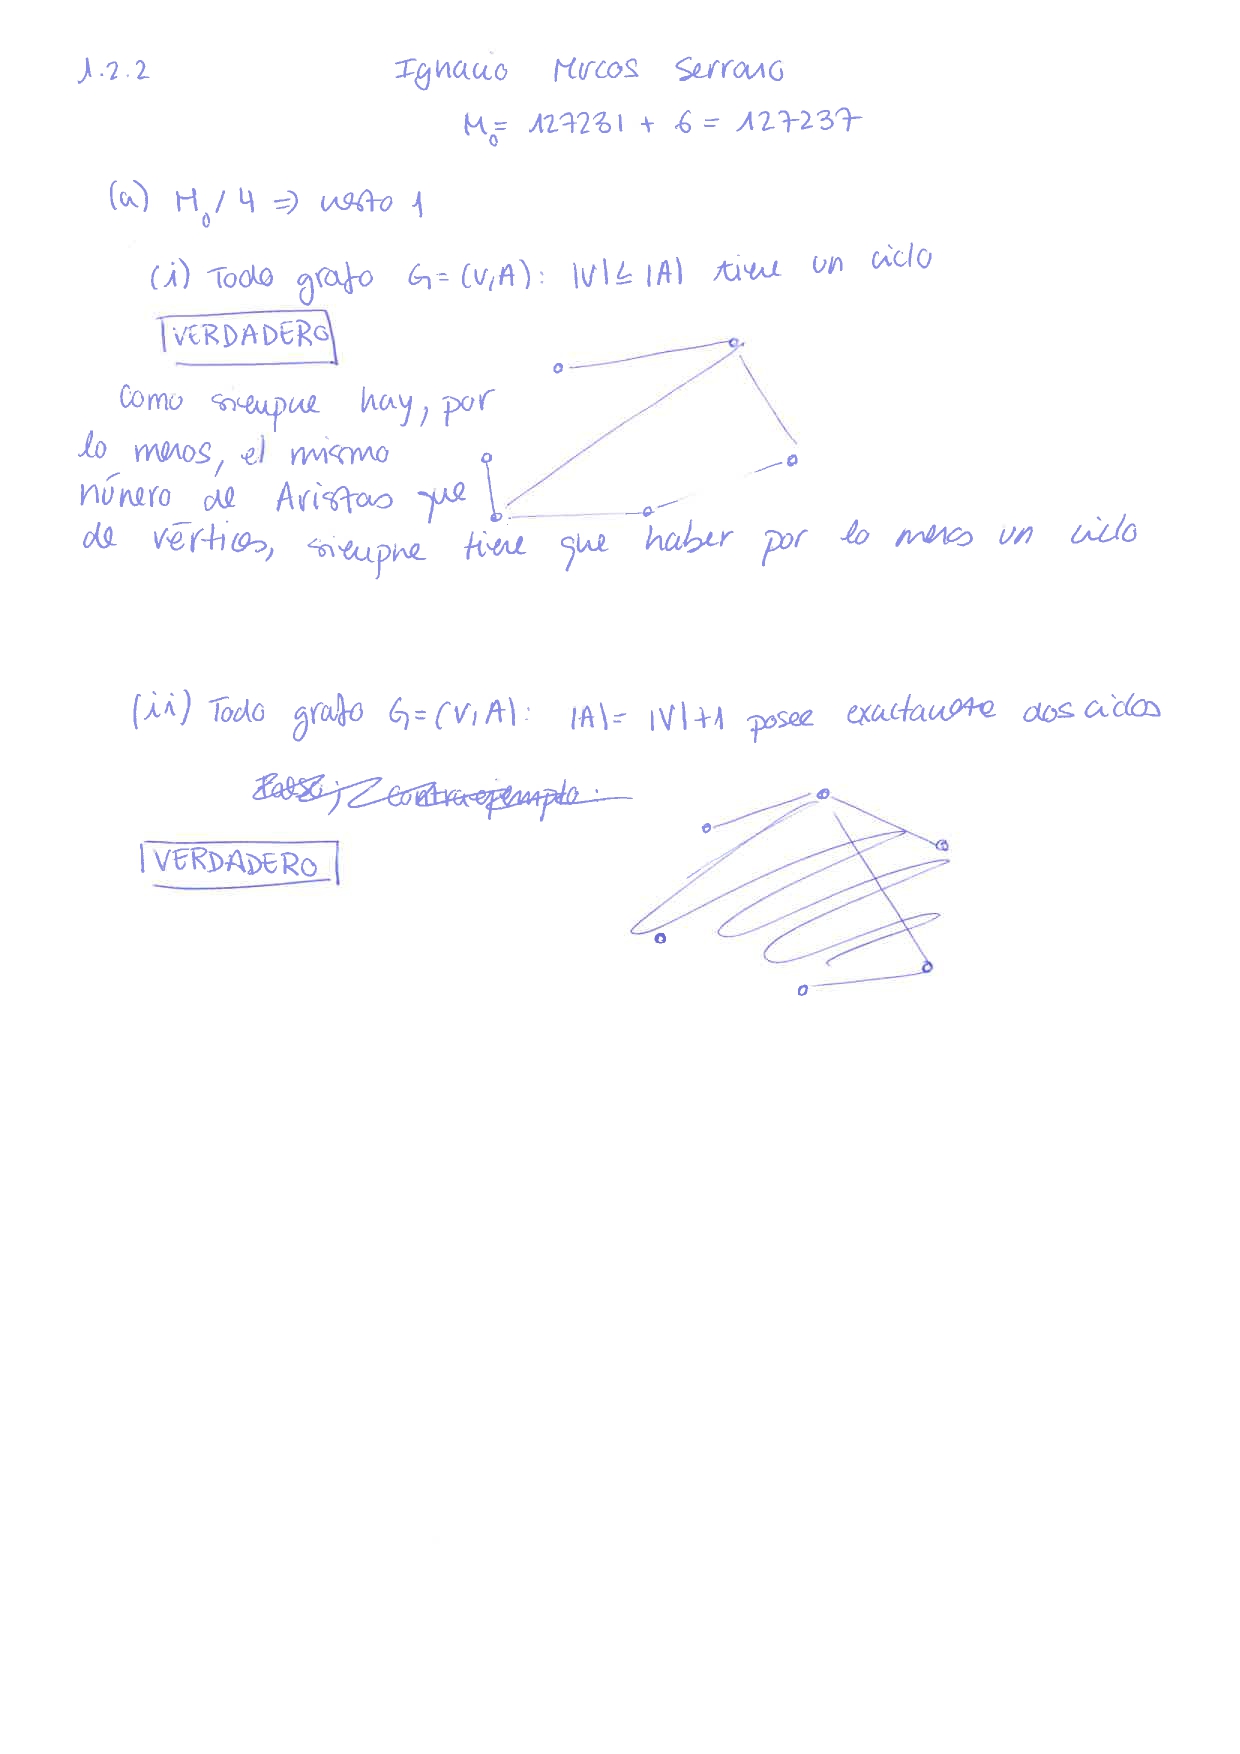 1.2.2 Ignacio Mrcos Serrano
M₀ = 127231 + 6 = 127237
(a) M₀ / 4 => resto 1
(i) Todo grafo G = (V, A): |V| ≤ |A| tiene un ciclo
VERDADERO
Como siempre hay, por
lo menos, el mismo
número de Aristas que
de vértices, siempre tiene que haber por lo menos un ciclo
(ii) Todo grafo G = (V, A): |A| = |V| + 1 posee exactamente dos ciclos
Falso; contraejemplo:
VERDADERO